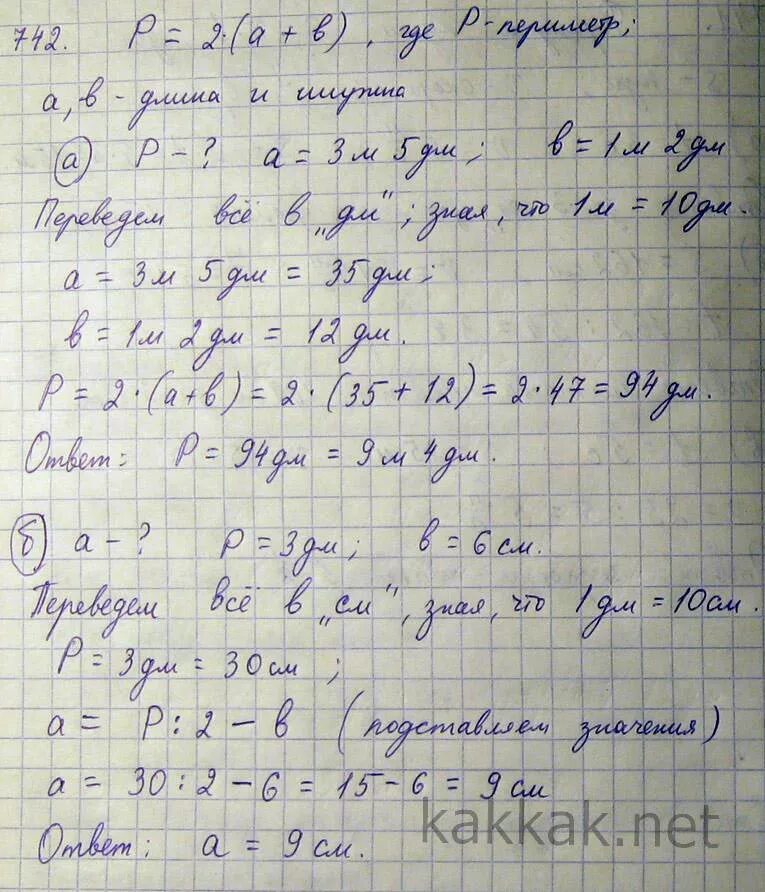 742. P = 2·(a + в), где P - периметр;
a, в - длина и ширина
а) P - ? a = 3м 5дм; в = 1м 2дм
Переведем всё в „дм"; зная, что 1м = 10дм.
a = 3м 5дм = 35дм;
в = 1м 2дм = 12дм.
P = 2·(a+в) = 2·(35+12) = 2·47 = 94дм.
Ответ: P = 94дм = 9м 4дм.
б) a - ? P = 3дм; в = 6см.
Переведем всё в „см", зная, что 1дм = 10см.
P = 3дм = 30см;
a = P:2 - в (подставляем значения)
a = 30:2 - 6 = 15 - 6 = 9см
kakkak.net
Ответ: a = 9см.